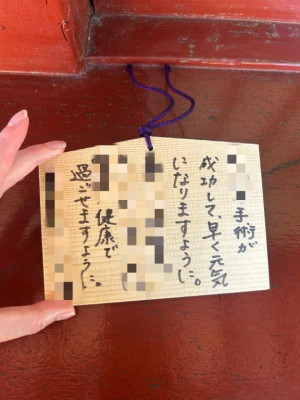 手術が
成功して、早く元気
になりますように。
健康で
過ごせますように。